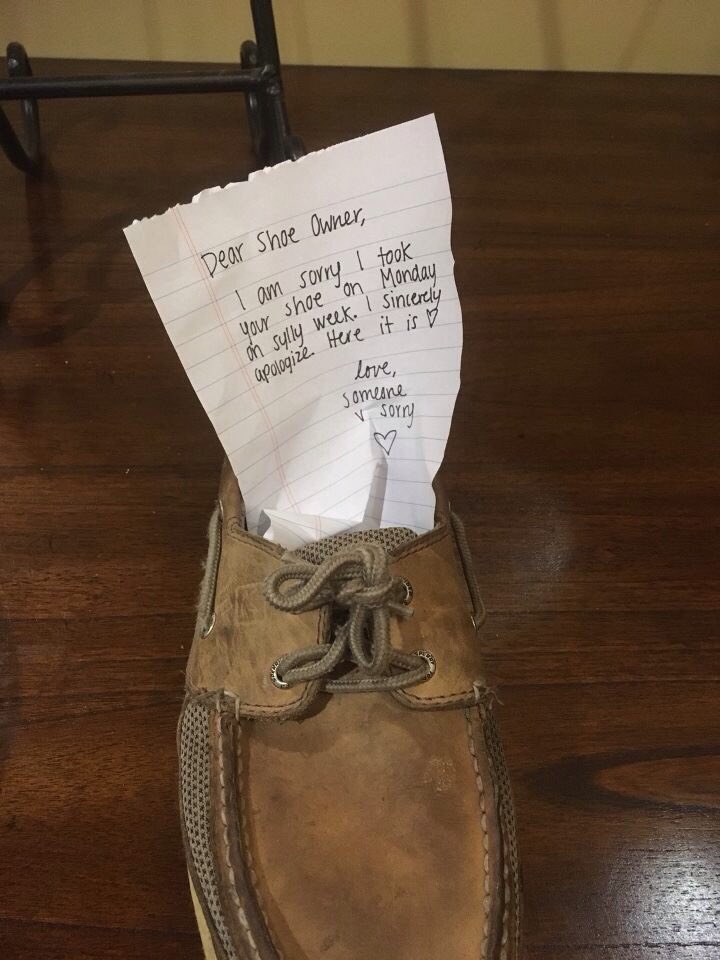 Dear Shoe Owner,
I am sorry I took
your shoe on Monday
on sylly week. I sincerely
apologize. Here it is ♡
love,
someone
v sorry
♡